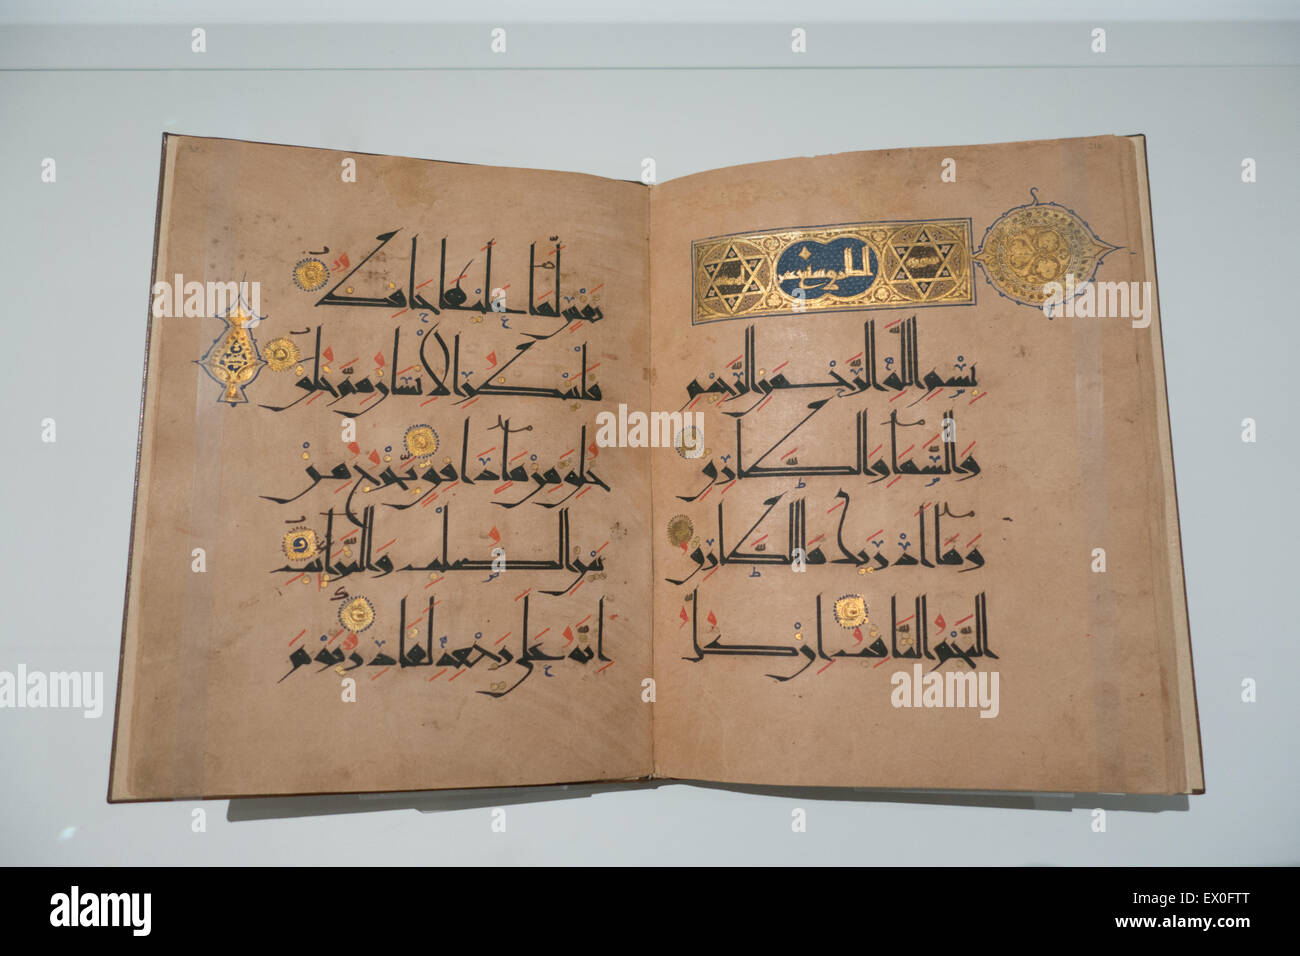 بسم الله الرحمن الرحيم
والسماء والطارق
وما ادريك ما الطارق
النجم الثاقب ان كل
نفس لما عليها حافظ
فلينظر الانسان مم خلق
خلق من ماء دافق يخرج من
بين الصلب والترائب
انه على رجعه لقادر يوم
alamy
Image ID: EX0FTT
www.alamy.com